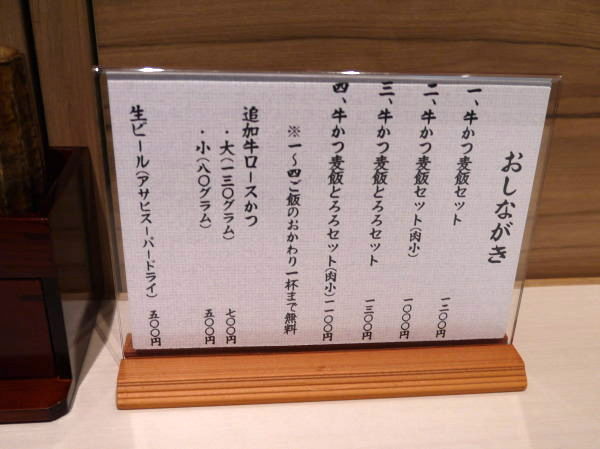 おしながき
一、牛かつ麦飯セット 一二〇〇円
二、牛かつ麦飯セット(肉小) 一〇〇〇円
三、牛かつ麦飯とろろセット 一三〇〇円
四、牛かつ麦飯とろろセット(肉小) 一一〇〇円
※一〜四ご飯のおかわり一杯まで無料
追加牛ロースかつ
・大(一三〇グラム) 七〇〇円
・小(八〇グラム) 五〇〇円
生ビール(アサヒスーパードライ) 五〇〇円